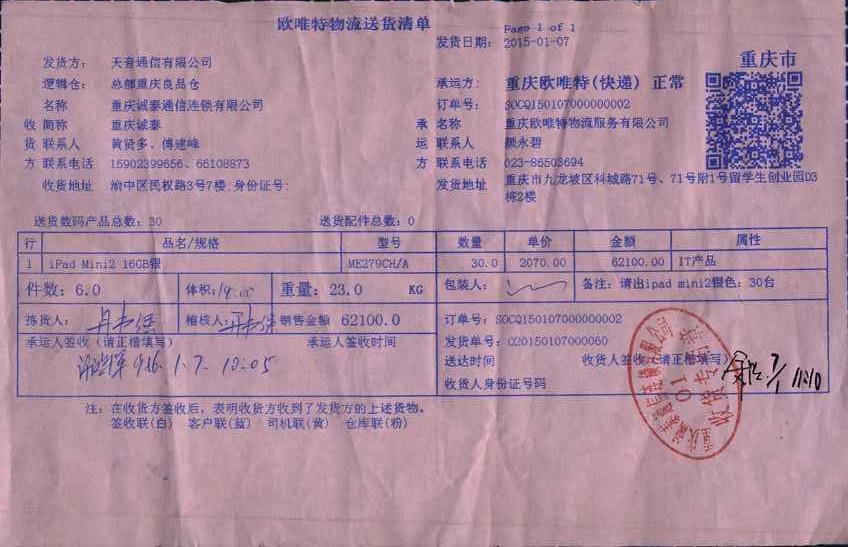 欧唯特物流送货清单
Page 1 of 1
发货日期: 2015-01-07
重庆市
发货方: 天音通信有限公司
逻辑仓: 总部重庆良品仓
承运方: 重庆欧唯特(快递) 正常
名称 重庆诚泰通信连锁有限公司
订单号: SOCQ150107000000002
收 简称 重庆诚泰
承 名称 重庆欧唯特物流服务有限公司
货 联系人 黄贤多、傅建峰
运 联系人 颜永碧
方 联系电话 15902399656、66108873
方 联系电话 023-86503694
收货地址 渝中区民权路3号7楼,身份证号:
发货地址 重庆市九龙坡区科城路71号、71号附1号留学生创业园D3栋2楼
送货数码产品总数: 30 送货配件总数: 0
行 品名/规格 型号 数量 单价 金额 属性
1 iPad Mini2 16GB银 ME279CH/A 30.0 2070.00 62100.00 IT产品
件数: 6.0 体积: 重量: 23.0 KG 包装人: 备注: 请出ipad mini2银色: 30台
拣货人: 稽核人: 销售金额 62100.0
订单号: SOCQ150107000000002
承运人签收 (请正楷填写) 承运人签收时间
发货单号: O20150107000060
1.7. 10:05
送达时间 收货人签收(请正楷填写)
7/1 11:10
收货人身份证号码
收货专用章
01
注: 在收货方签收后, 表明收货方收到了发货方的上述货物。
签收联(白) 客户联(蓝) 司机联(黄) 仓库联(粉)